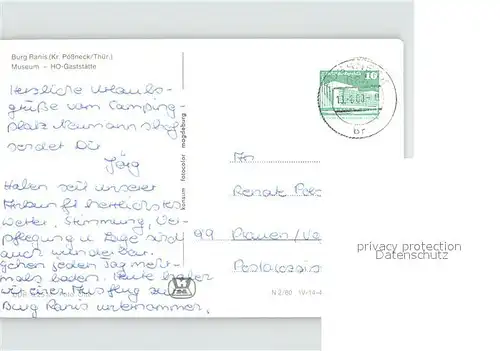 Burg Ranis (Kr. Pößneck/Thür.)
Museum – HO-Gaststätte
Herzliche Urlaubs-
grüße vom Camping-
platz Neumannshof
sendet Dir
Jörg
Haben seit unserer
Ankunft herrlichstes
Wetter, Stimmung, Ver-
pflegung u. Lage sind
auch wunderbar.
Gehen jeden Tag mehr-
mals baden. Heute haben
wir einen Ausflug zur
Burg Ranis unternommen,
konsum fotocolor magdeburg
10
br
An
Renate
99 Plauen/
N 2/80 IV-14-4
privacy protection
Datenschutz